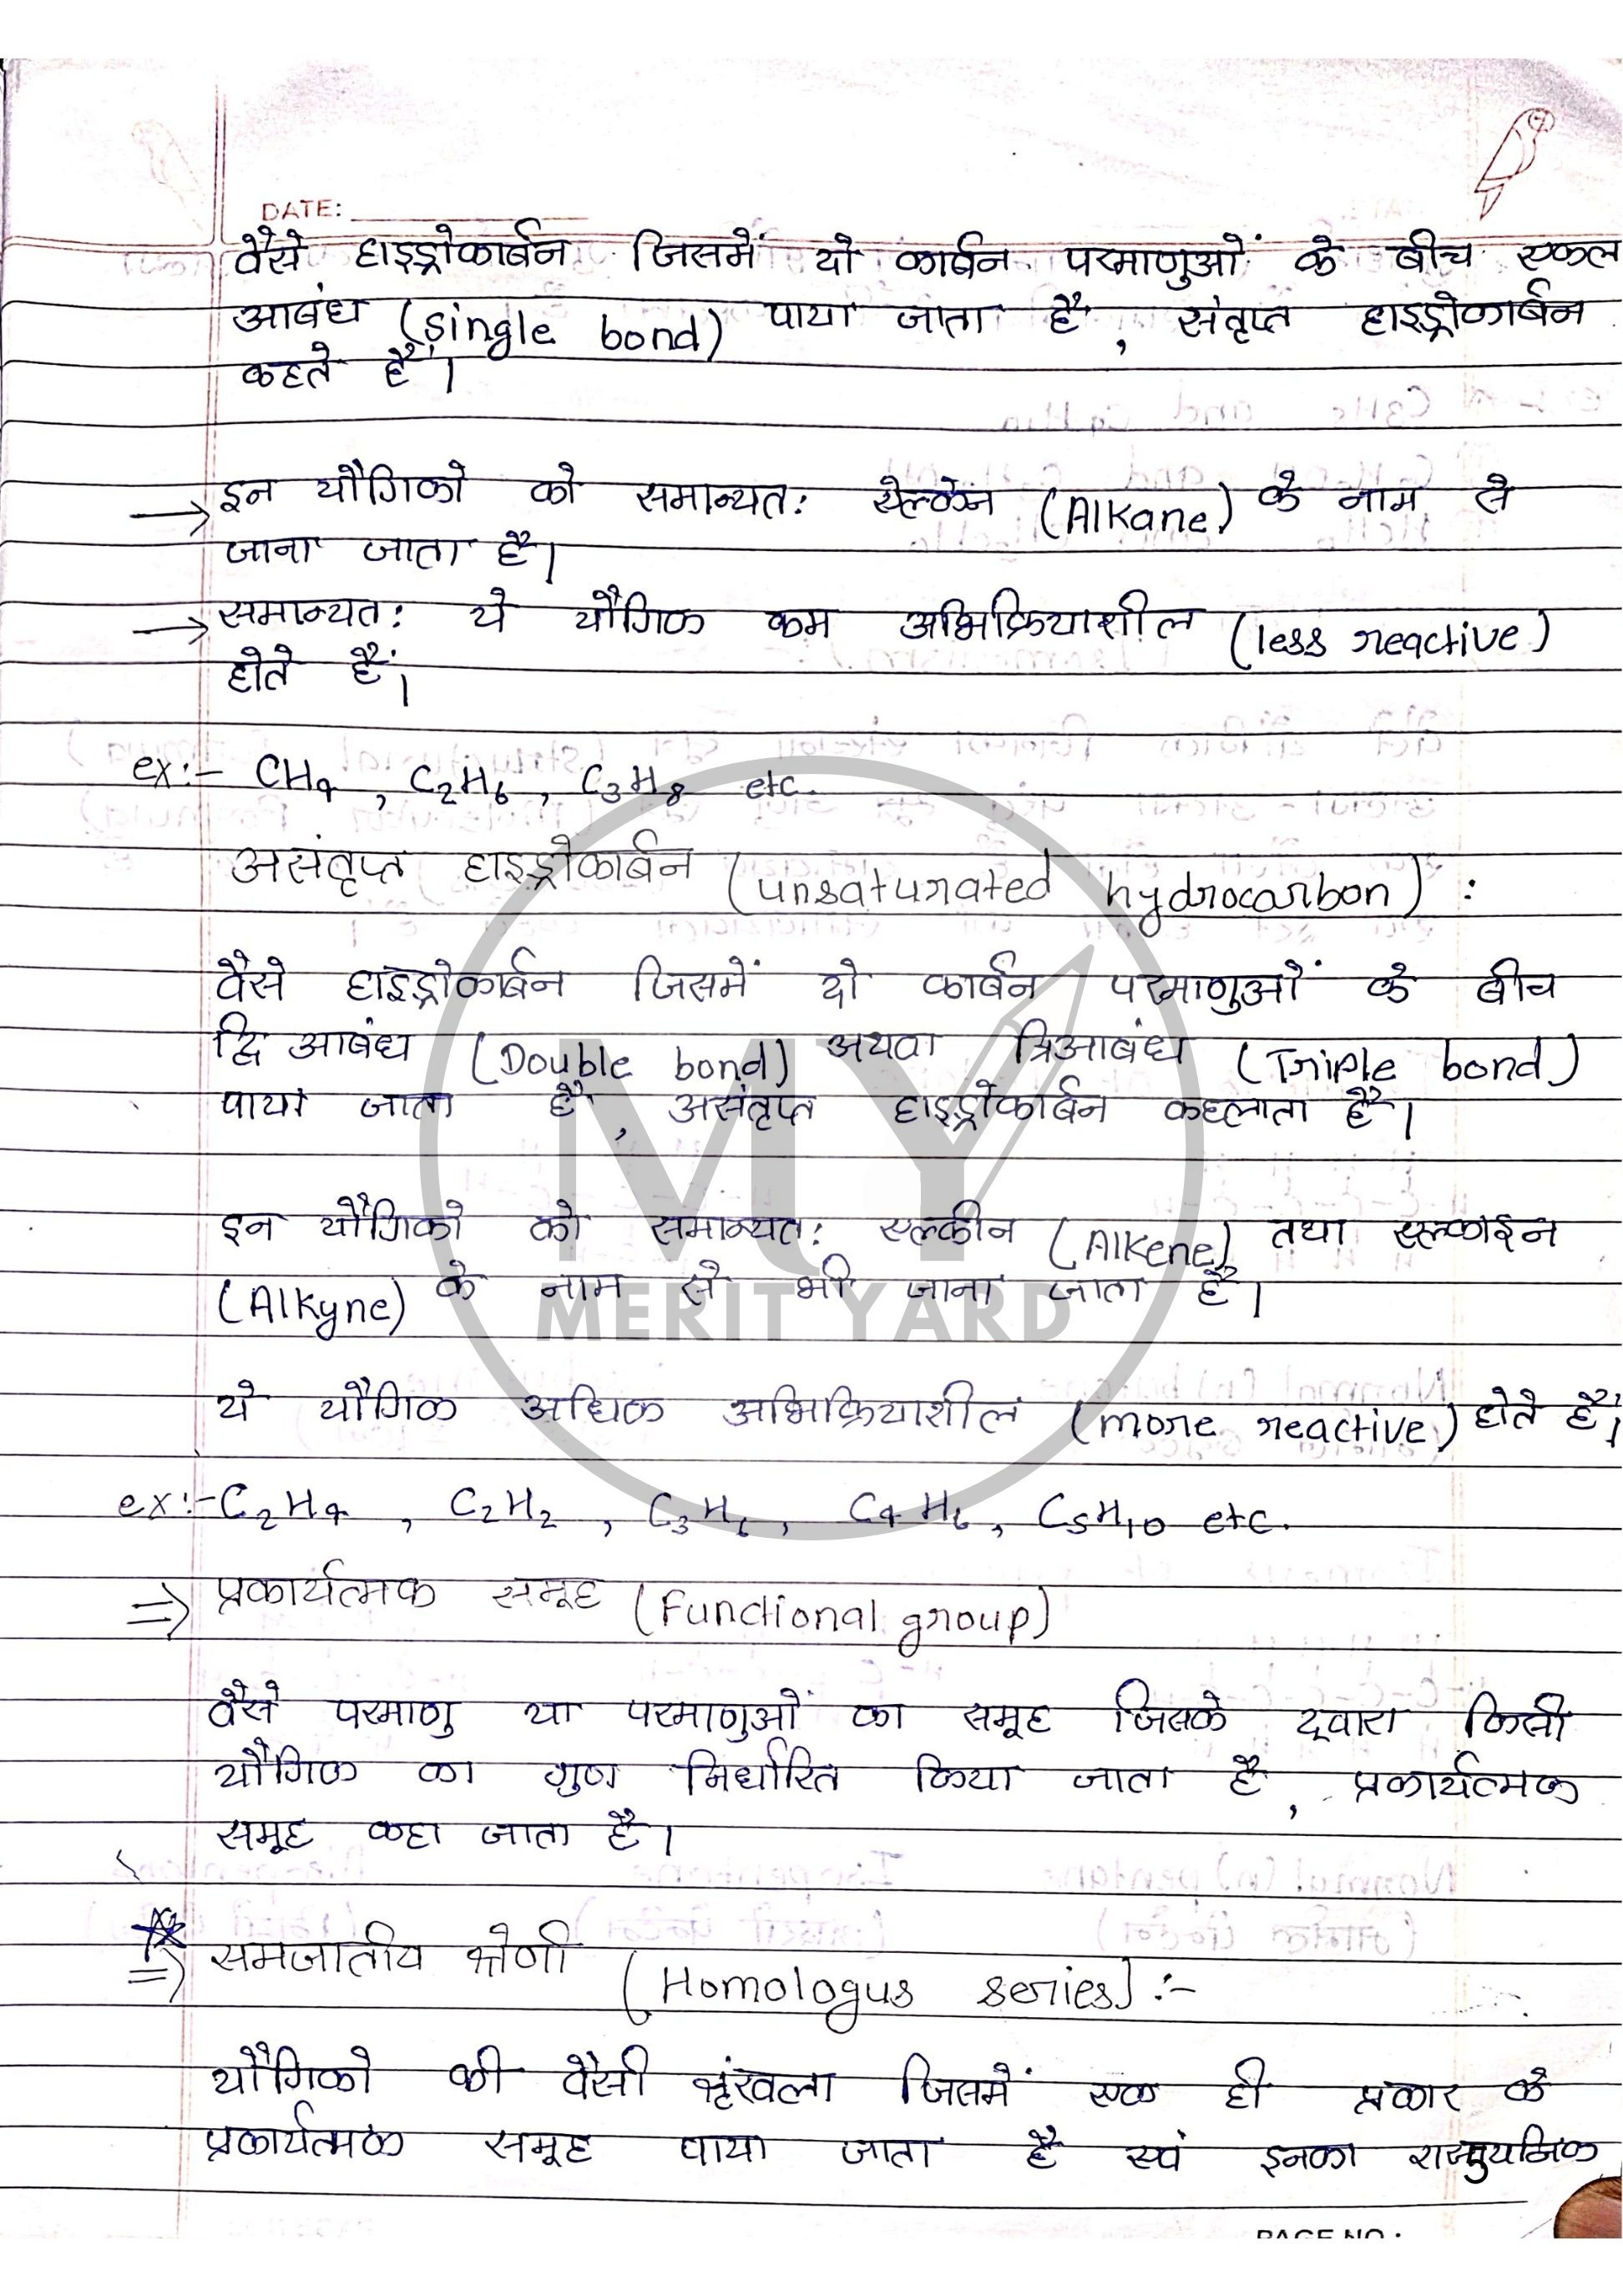 DATE:
वैसे हाइड्रोकार्बन जिसमें दो कार्बन परमाणुओं के बीच एकल
आबंध (single bond) पाया जाता है, संतृप्त हाइड्रोकार्बन
कहते हैं।
→ इन यौगिको को समान्यत: ऐल्केन (Alkane) के नाम से
जाना जाता है।
→ समान्यत: ये यौगिक कम अभिक्रियाशील (less reactive)
होते हैं।
ex:- CH4, C2H6, C3H8 etc.
असंतृप्त हाइड्रोकार्बन (unsaturated hydrocarbon) :
वैसे हाइड्रोकार्बन जिसमें दो कार्बन परमाणुओं के बीच
द्वि आबंध (Double bond) अथवा त्रिआबंध (Triple bond)
पाया जाता है, असंतृप्त हाइड्रोकार्बन कहलाता है।
इन यौगिको को समान्यत: एल्कीन (Alkene) तथा एल्काइन
(Alkyne) के नाम से भी जाना जाता है।
ये यौगिक अधिक अभिक्रियाशील (more reactive) होते हैं।
ex:- C2H4, C2H2, C3H6, C4H6, C5H10 etc.
⇒ प्रकार्यत्मक समूह (Functional group)
वैसे परमाणु या परमाणुओं का समूह जिसके द्वारा किसी
यौगिक का गुण निर्धारित किया जाता है, प्रकार्यत्मक
समूह कहा जाता है।
⇒ समजातीय श्रेणी (Homologus series) :-
यौगिको की वैसी श्रृंखला जिसमें एक ही प्रकार के
प्रकार्यत्मक समूह पाया जाता है एवं इनका
PAGE NO.:
MY
MERIT YARD